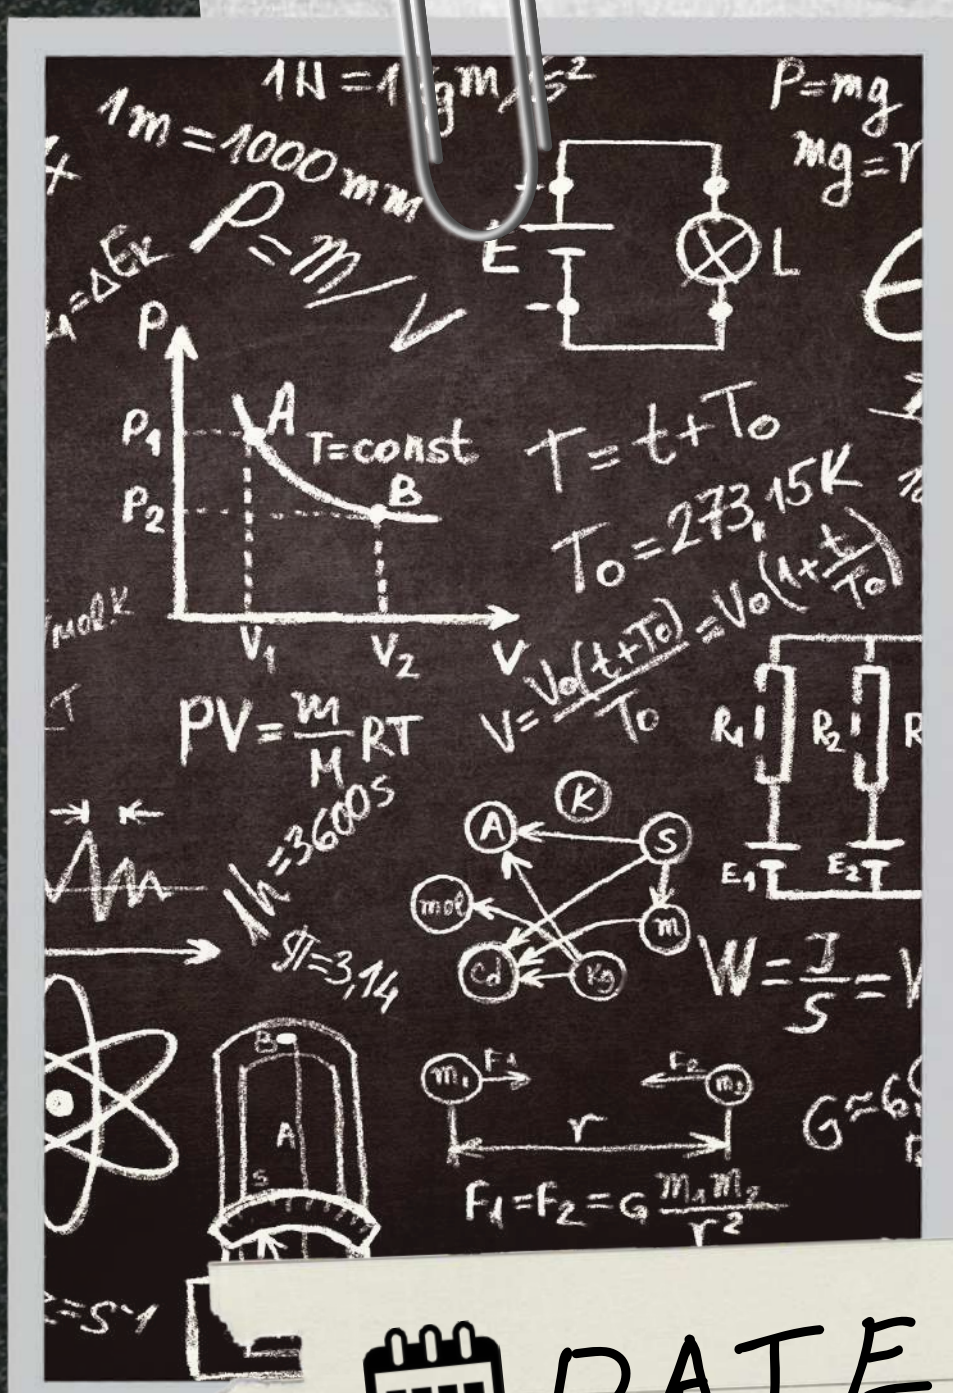 1N = 1kgm/s²
P=mg
1m = 1000 mm
mg=
P = m/V
=ΔEk
E
L
P
P1
A
T=const
P2
B
V1
V2
V
T = t+T0
T0 = 273,15K
V = V0(t+T0)/T0 = V0(1+t/T0)
mol.K
PV = m/M RT
R1
R2
R
E1
E2
1h=3600s
π=3,14
K
A
S
mol
m
cd
kg
W = J/S =
B
A
S
m1
F1
F2
m2
r
G≈6
F1=F2=G m1m2/r²
=S^-1
DATE